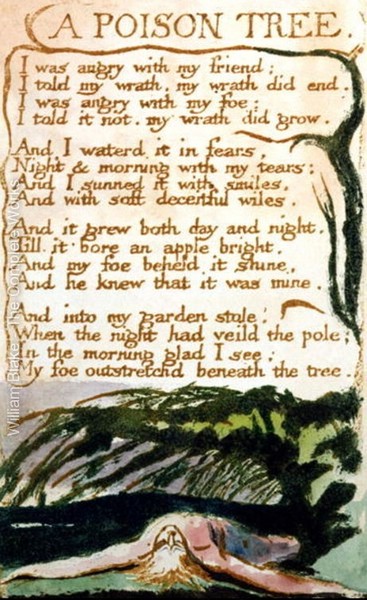 A POISON TREE.
I was angry with my friend;
I told my wrath, my wrath did end.
I was angry with my foe:
I told it not, my wrath did grow.
And I waterd it in fears,
Night & morning with my tears:
And I sunned it with smiles,
And with soft deceitful wiles.
And it grew both day and night.
Till it bore an apple bright.
And my foe beheld it shine,
And he knew that it was mine.
And into my garden stole;
When the night had veild the pole;
In the morning glad I see;
My foe outstretchd beneath the tree.
William Blake - The complete works